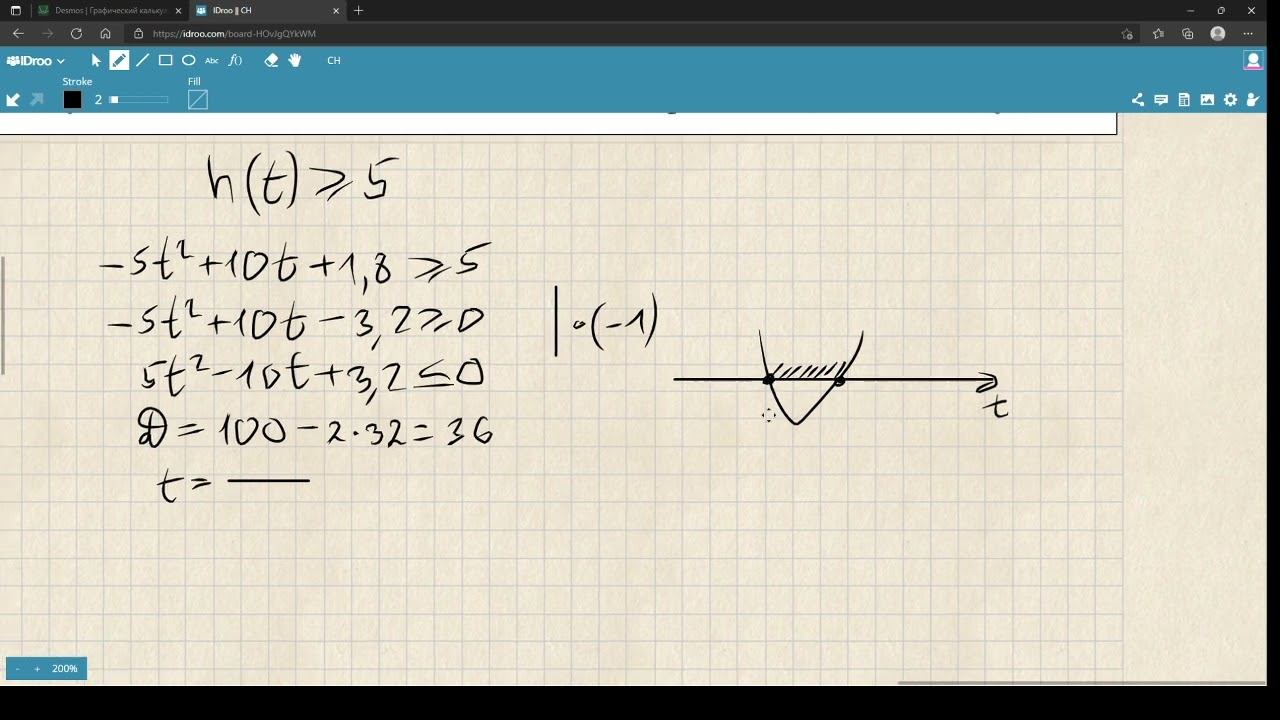 Desmos | Графический кальку
IDroo || CH
https://idroo.com/board-HOvJgQYkWM
IDroo
Abc
f()
CH
Stroke
Fill
2
h(t) ⩾ 5
-5t² + 10t + 1,8 ⩾ 5
-5t² + 10t - 3,2 ⩾ 0 | · (-1)
5t² - 10t + 3,2 ≤ 0
D = 100 - 2 · 32 = 36
t =
t
- + 200%